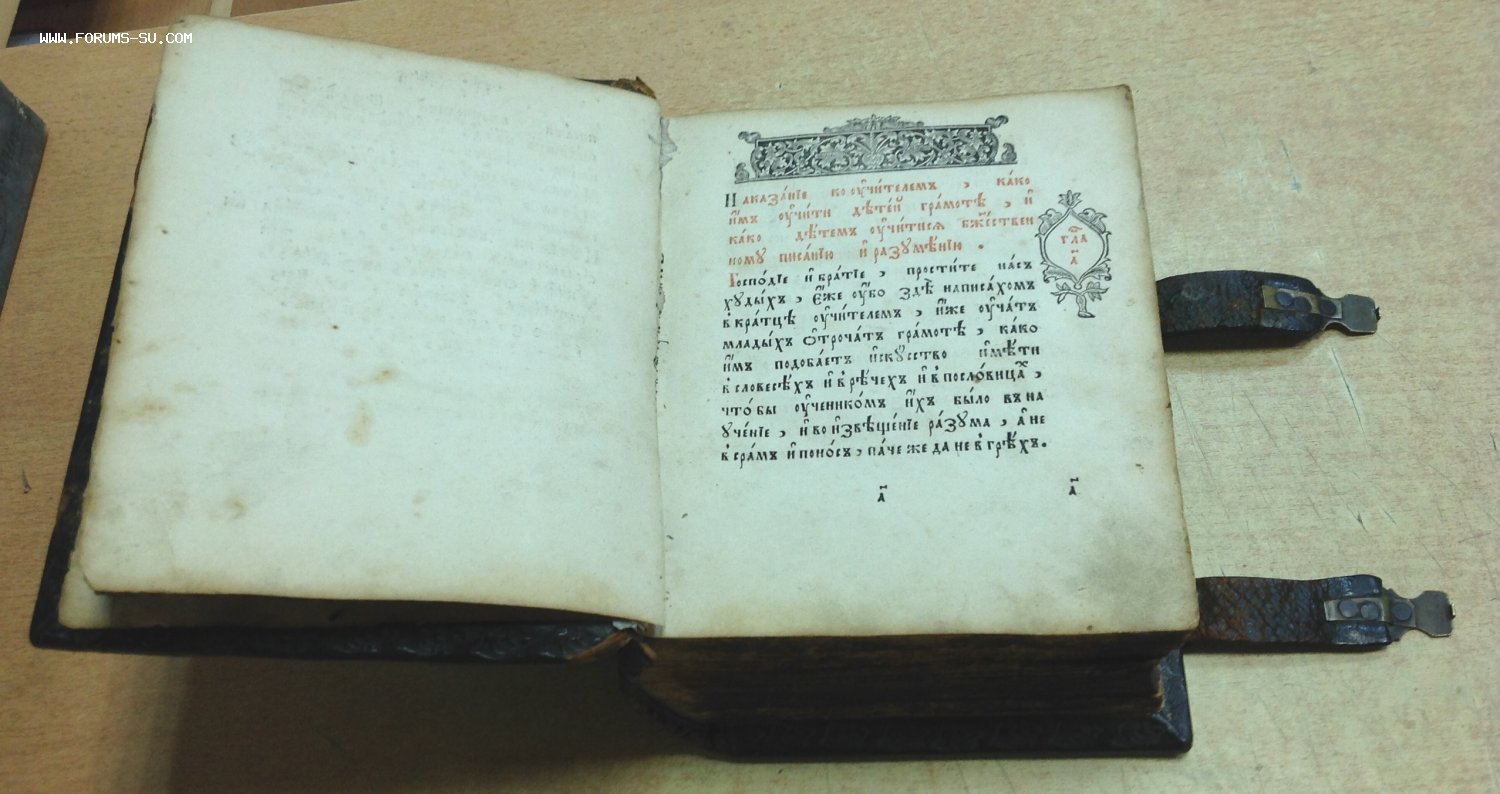 www.forums-su.com
Наказа́нїе ко оу҆чи́телемъ , ка́ко
и҆̀мъ оу҆чи́ти дѣте́й гра́мотѣ , и҆
ка́ко дѣ́темъ оу҆чи́тисѧ бж҃е́ствен
ному писа́нїю и҆ разумѣ́нїю .
Госпо́дїе и҆ бра́тїе , прости́те на́съ
худы́хъ , є҆́же оу҆́бо здѣ̀ написа́хомъ
вкра́тцѣ оу҆чи́телемъ , и҆́же оу҆ча́тъ
млады́хъ ѻ҆троча́тъ гра́мотѣ , ка́ко
и҆̀мъ подоба́етъ и҆ску́сство и҆мѣ́ти
въ словесѣ́хъ и҆ в рѣ́чехъ и҆ в посло́вицахъ ,
что́ бы оу҆ченико́мъ и҆́хъ бы́ло въ на
уче́нїе , и҆ во и҆звѣще́нїе ра́зума , а҆ не
в сра́мъ и҆ поно́съ , па́че же да не в грѣ́хъ .
ѿ
гла
а҃
а҃ı
а҃ı